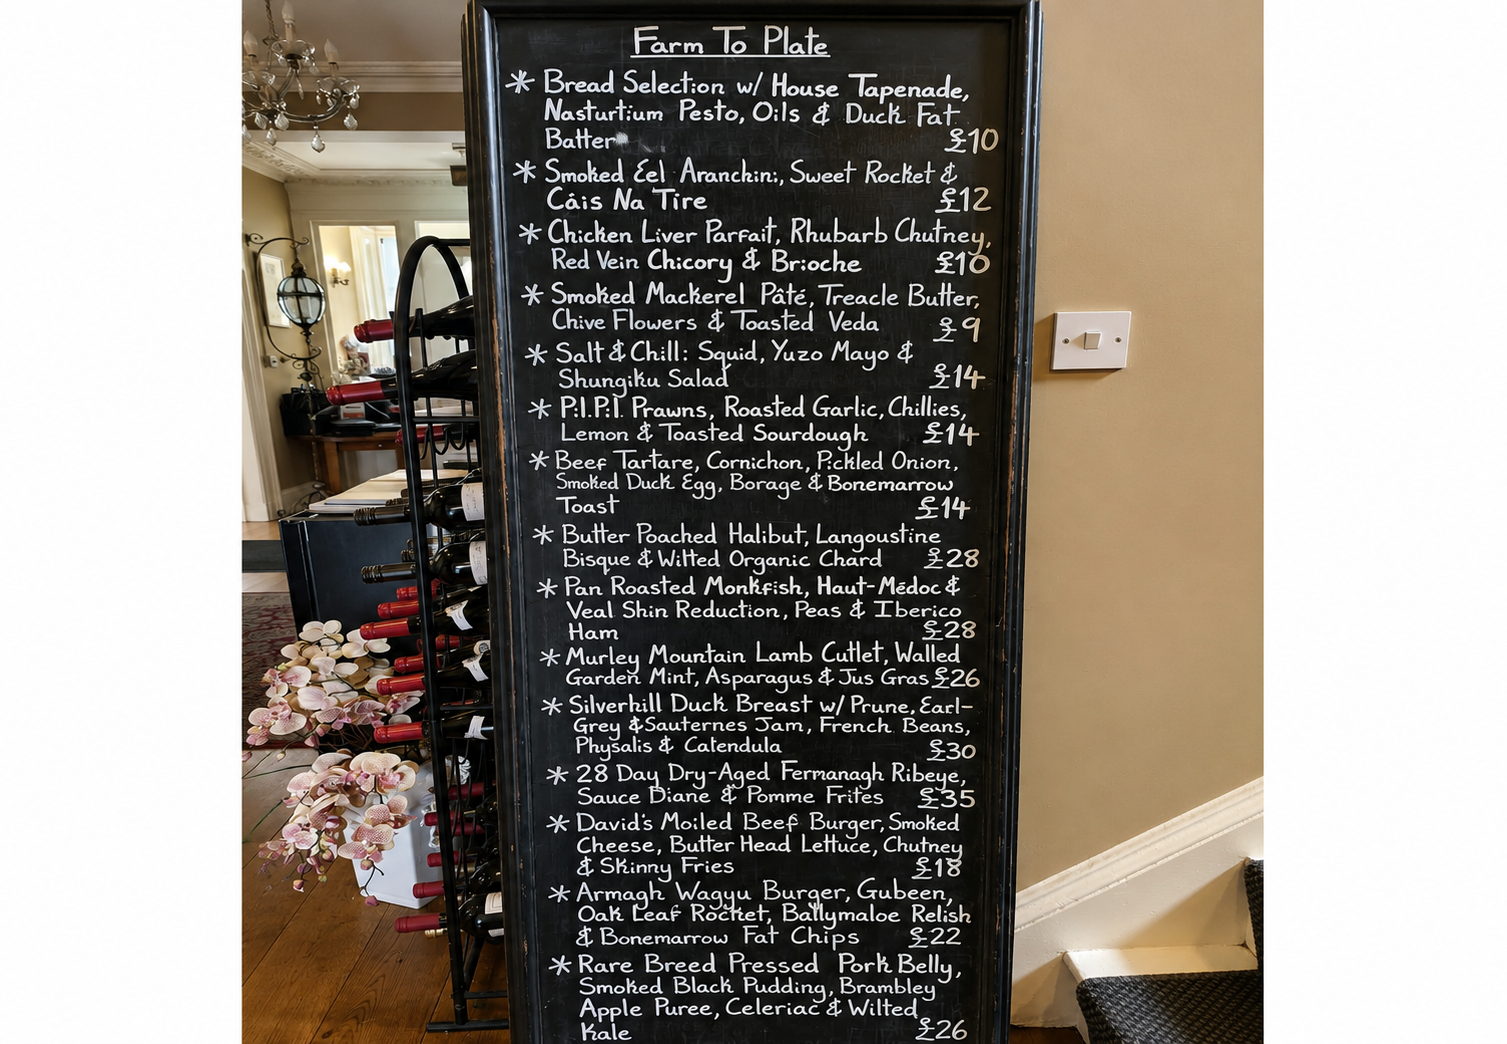 Farm To Plate
* Bread Selection w/ House Tapenade,
Nasturtium Pesto, Oils & Duck Fat
Batter £10
* Smoked Eel Aranchini, Sweet Rocket &
Cáis Na Tire £12
* Chicken Liver Parfait, Rhubarb Chutney,
Red Vein Chicory & Brioche £10
* Smoked Mackerel Pâté, Treacle Butter,
Chive Flowers & Toasted Veda £9
* Salt & Chilli Squid, Yuzo Mayo &
Shungiku Salad £14
* P.I.P.I. Prawns, Roasted Garlic, Chillies,
Lemon & Toasted Sourdough £14
* Beef Tartare, Cornichon, Pickled Onion,
Smoked Duck Egg, Borage & Bonemarrow
Toast £14
* Butter Poached Halibut, Langoustine
Bisque & Wilted Organic Chard £28
* Pan Roasted Monkfish, Haut-Médoc &
Veal Shin Reduction, Peas & Iberico
Ham £28
* Murley Mountain Lamb Cutlet, Walled
Garden Mint, Asparagus & Jus Gras £26
* Silverhill Duck Breast w/ Prune, Earl-
Grey & Sauternes Jam, French Beans,
Physalis & Catendula £30
* 28 Day Dry-Aged Fermanagh Ribeye,
Sauce Diane & Pomme Frites £35
* David's Moiled Beef Burger, Smoked
Cheese, Butter Head Lettuce, Chutney
& Skinny Fries £18
* Armagh Wagyu Burger, Gubeen,
Oak Leaf Rocket, Ballymaloe Relish
& Bonemarrow Fat Chips £22
* Rare Breed Pressed Pork Belly,
Smoked Black Pudding, Brambley
Apple Puree, Celeriac & Wilted
Kale £26